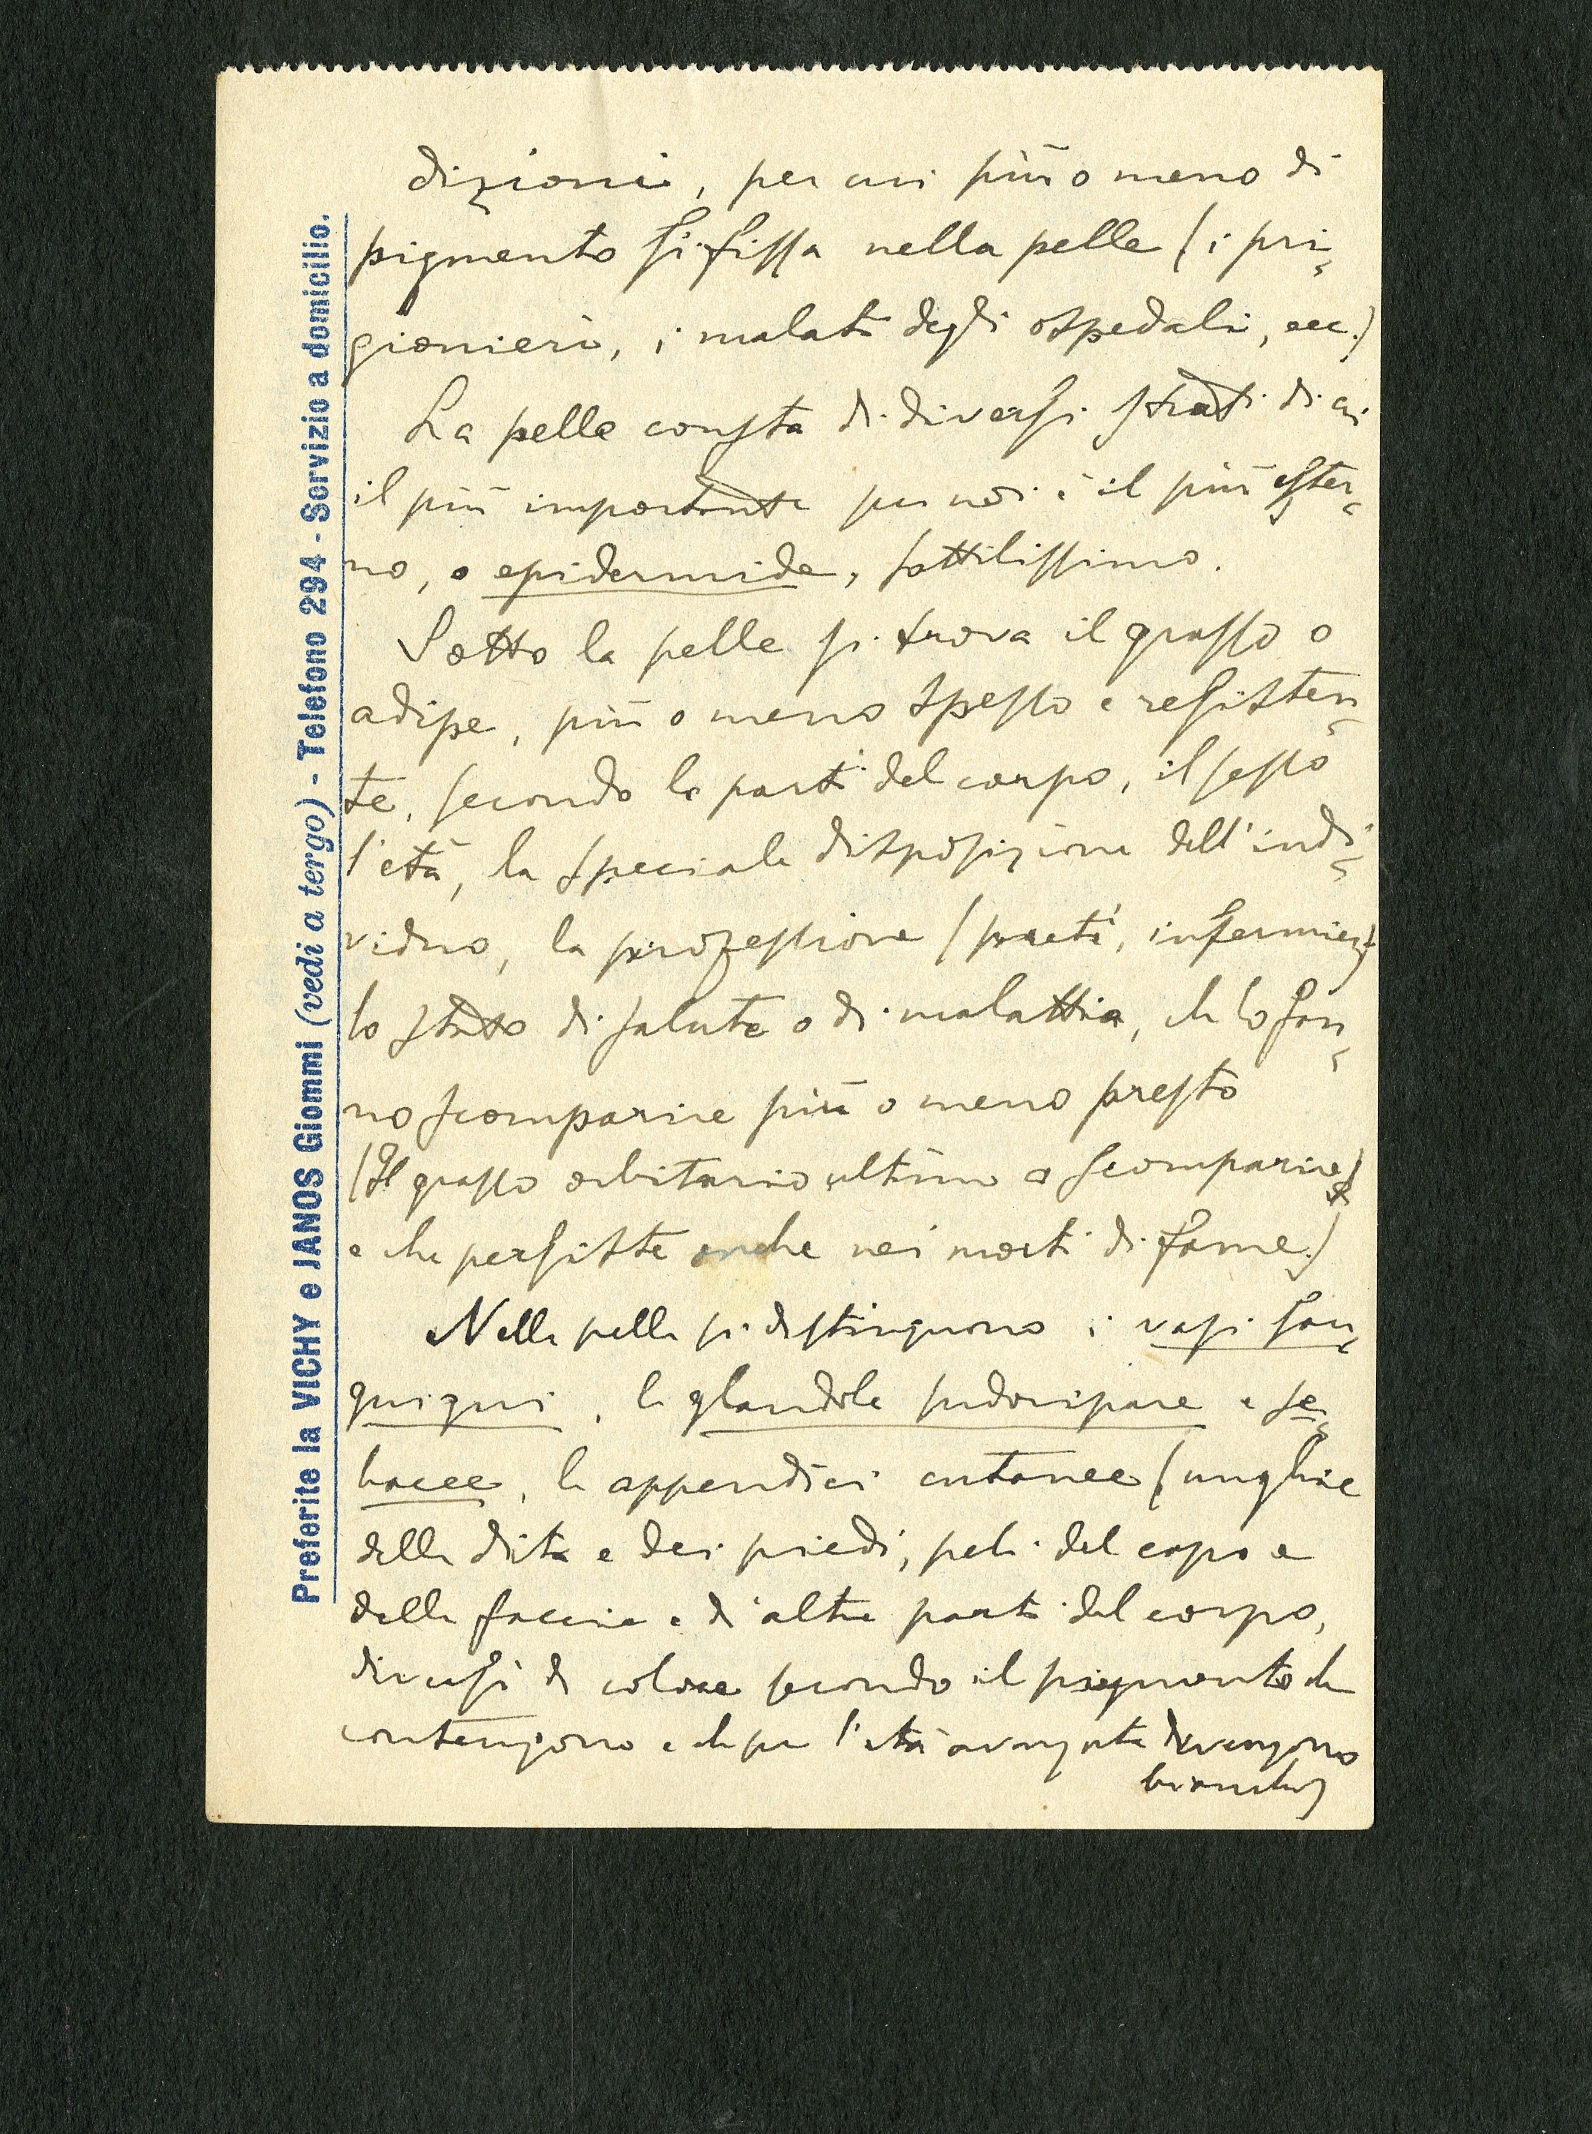 dizioni, per cui più o meno di
pigmento si fissa nella pelle (i pri-
gionieri, i malati degli ospedali, ecc.)
La pelle consta di diversi strati di cui
il più importante per noi è il più ester-
no, o epidermide, sottilissimo.
Sotto la pelle si trova il grasso o
adipe, più o meno spesso e resisten-
te, secondo le parti del corpo, il sesso
l'età, la speciale disposizione dell'indi-
viduo, la professione (preti, infermieri)
lo stato di salute o di malattia, che lo fan-
no scomparire più o meno presto
(Il grasso orbitario ultimo a scomparire
e che persiste anche nei morti di fame.)
Nella pelle si distinguono i vasi san-
guigni, le glandole sudoripare e se-
bacee, le appendici cutanee (unghie
delle dita e dei piedi, peli del capo e
della faccia e di altre parti del corpo,
diversi di colore secondo il pigmento che
contengono e che per l'età avanzata divengono
bianchi)
Preferite la VICHY e JANOS Giommi (vedi a tergo) - Telefono 294 - Servizio a domicilio.